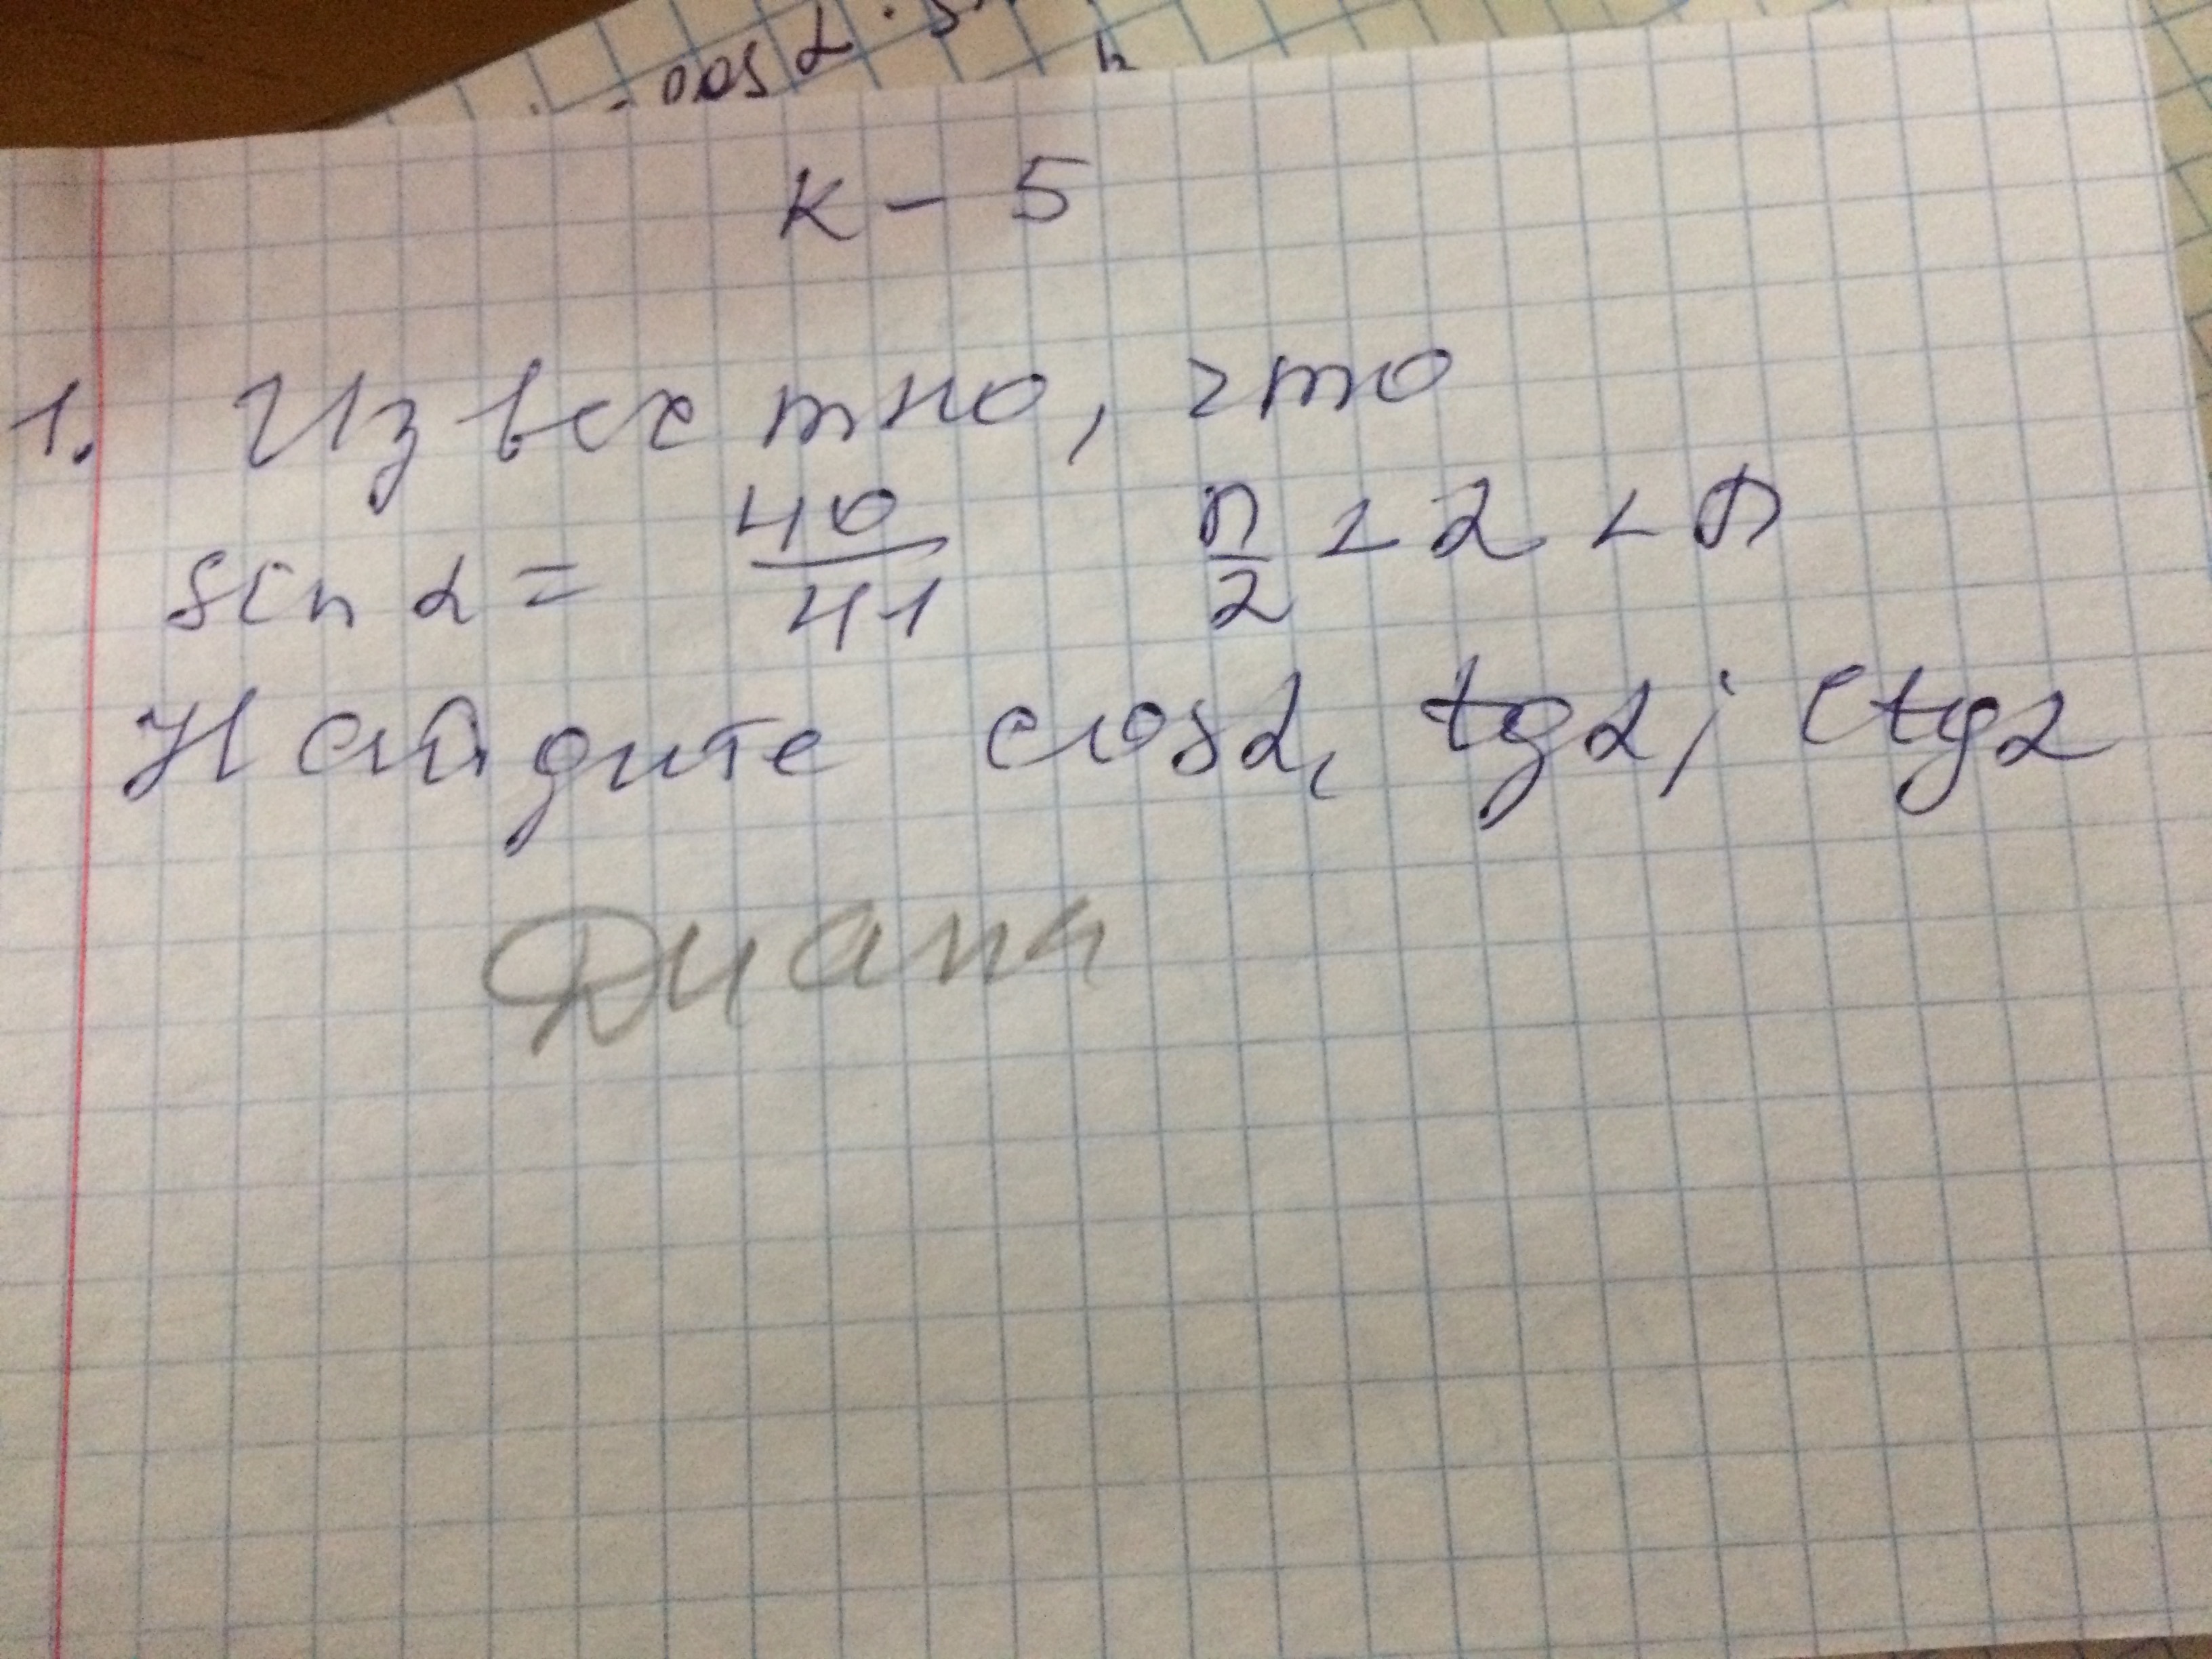 K - 5
1. Известно, что
sin α = 40/41 π/2 < α < π
Найдите cosα, tgα, ctgα